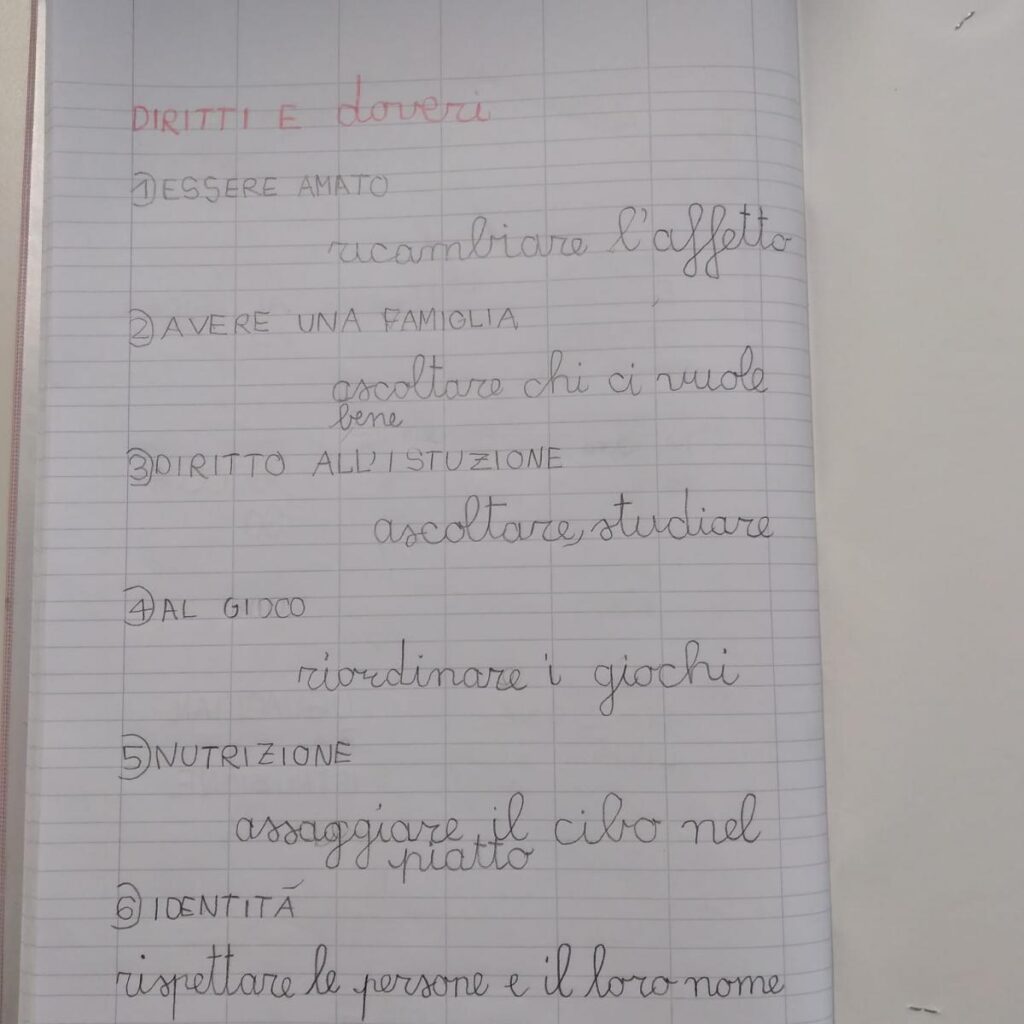 DIRITTI E doveri
① ESSERE AMATO
ricambiare l'affetto
② AVERE UNA FAMIGLIA
ascoltare chi ci vuole
bene
③ DIRITTO ALL'ISTUZIONE
ascoltare, studiare
④ AL GIOCO
riordinare i giochi
⑤ NUTRIZIONE
assaggiare il cibo nel
piatto
⑥ IDENTITÀ
rispettare le persone e il loro nome